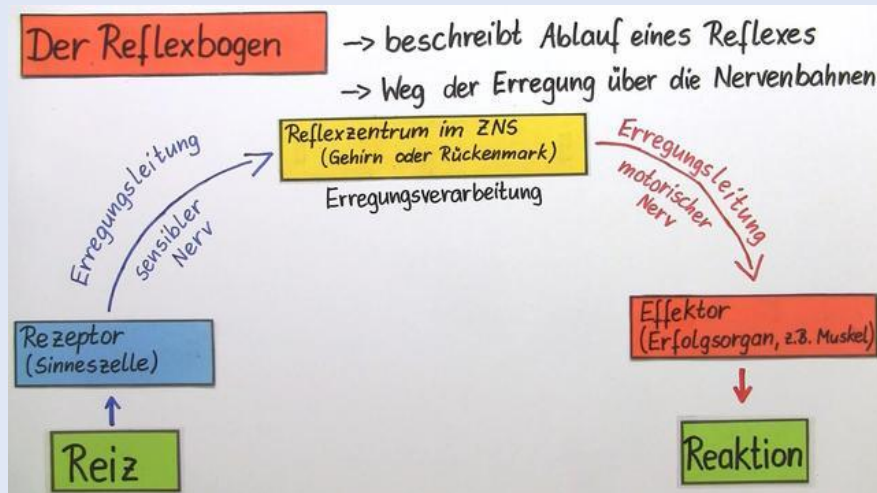 Der Reflexbogen
-> beschreibt Ablauf eines Reflexes
-> Weg der Erregung über die Nervenbahnen
Reflexzentrum im ZNS
(Gehirn oder Rückenmark)
Erregungsverarbeitung
Erregungsleitung
sensibler
Nerv
Erregungsleitung
motorischer
Nerv
Rezeptor
(Sinneszelle)
Effektor
(Erfolgsorgan, z.B. Muskel)
Reiz
Reaktion